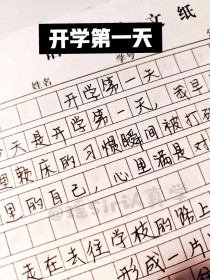 开学第一天
文纸
姓名
学号
开学第一天
今天是开学第一天，我早
里赖床的习惯瞬间被打破
里的自己，心里满是对
走在去往学校的路上
形成一片